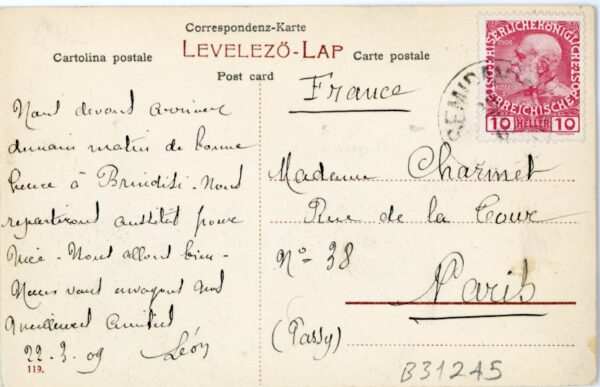 Correspondenz-Karte
Cartolina postale LEVELEZŐ-LAP Carte postale
Post card
Nous devons arriver
demain matin de bonne
heure à Brindisi. Nous
repartirons aussitôt pour
Nice - Nous allons bien -
Nous vous envoyons nos
meilleures amitiés
22-3-09 Léon
119.
France
Madame Charmet
Rue de la Tour
N° 38
Paris
(Passy)
B31245
1908
KAISERLICHE KÖNIGLICHE
ÖSTERREICHISCHE
10 HELLER 10